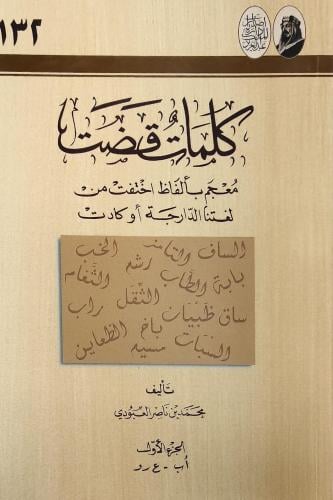 ١٣٢
كلماتٌ قضَت
مُعجم بألفاظ اختفت من
لغتنا الدارجة أو كادت
الساف
الخب
رشد
بابة الطاب
الثغام
ساق ظبيان
الثقل
راب
السنبات
باخ
الظعاين
تأليف
محمد بن ناصر العبودي
الجزء الأول
أ ب - ع ر و